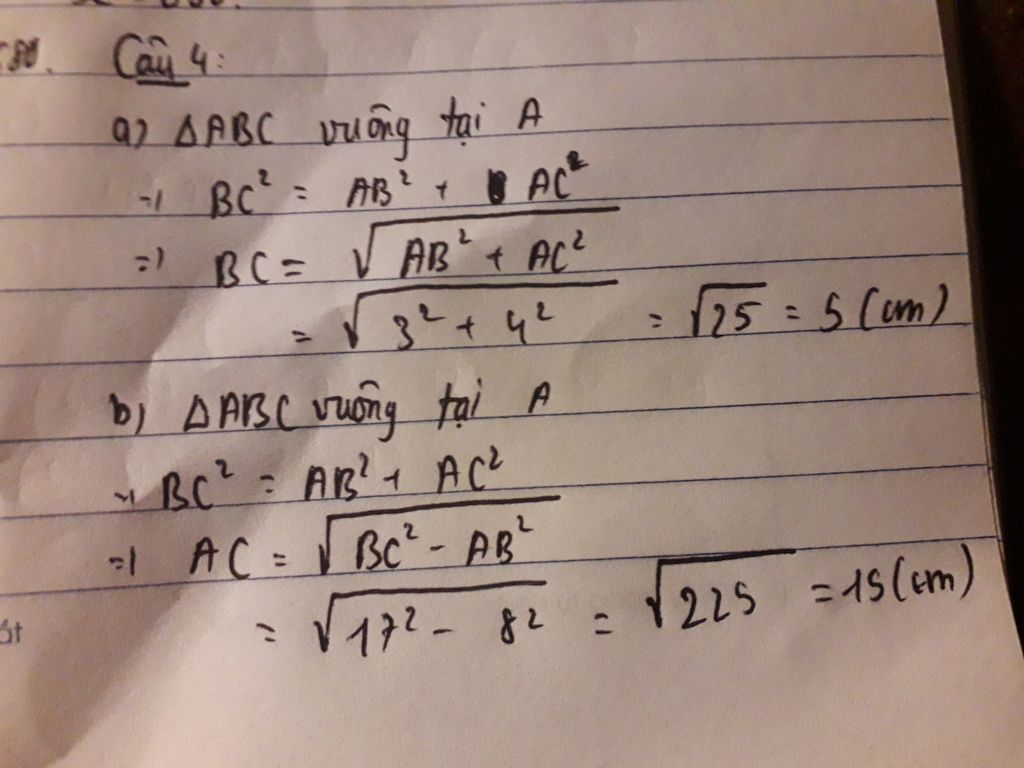 Câu 4:
a) ΔABC vuông tại A
=> BC² = AB² + AC²
=> BC = √(AB² + AC²)
= √(3² + 4²) = √25 = 5 (cm)
b) ΔABC vuông tại A
=> BC² = AB² + AC²
=> AC = √(BC² - AB²)
= √(17² - 8²) = √225 = 15 (cm)
át